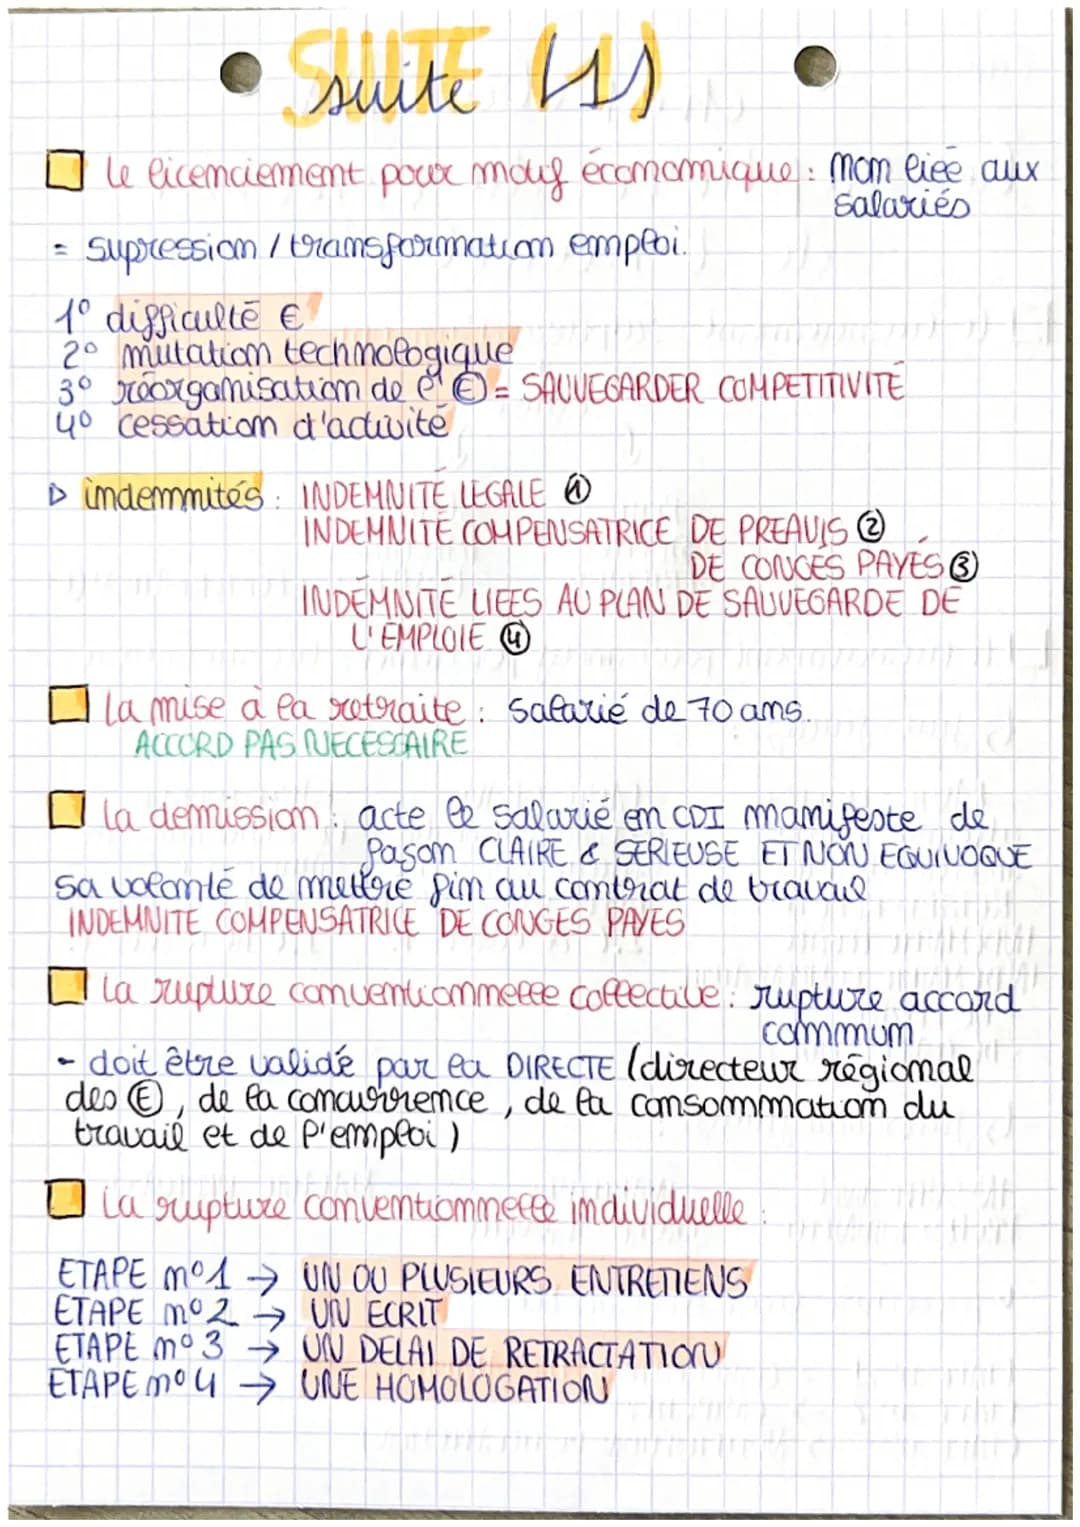 SUITE
suite (1)
Le licenciement pour motif économique : non liée aux
salariés
= supression / transformation emploi.
1° difficulté €
2° mutation technologique
3° réorganisation de l'Ⓔ = SAUVEGARDER COMPETITIVITÉ
4° cessation d'activité
▷ indemnités : INDEMNITÉ LEGALE ①
INDEMNITÉ COMPENSATRICE DE PREAVIS ②
DE CONGÉS PAYÉS ③
INDEMNITÉ LIEES AU PLAN DE SAUVEGARDE DE
L'EMPLOIE ④
La mise à la retraite : salarié de 70 ans.
ACCORD PAS NECESSAIRE
La demission : acte le salarié en CDI manifeste de
façon CLAIRE & SERIEUSE ET NON EQUIVOQUE
sa volonté de mettre fin au contrat de travail
INDEMNITE COMPENSATRICE DE CONGES PAYES
La rupture conventionnelle collective : rupture accord
commum
- doit être validé par la DIRECTE (directeur régional
des Ⓔ, de la concurrence, de la consommation du
travail et de l'emploi)
La rupture conventionnelle individuelle :
ETAPE n°1 → UN OU PLUSIEURS ENTRETIENS
ETAPE n°2 → UN ECRIT
ETAPE n°3 → UN DELAI DE RETRACTATION
ETAPE n°4 → UNE HOMOLOGATION